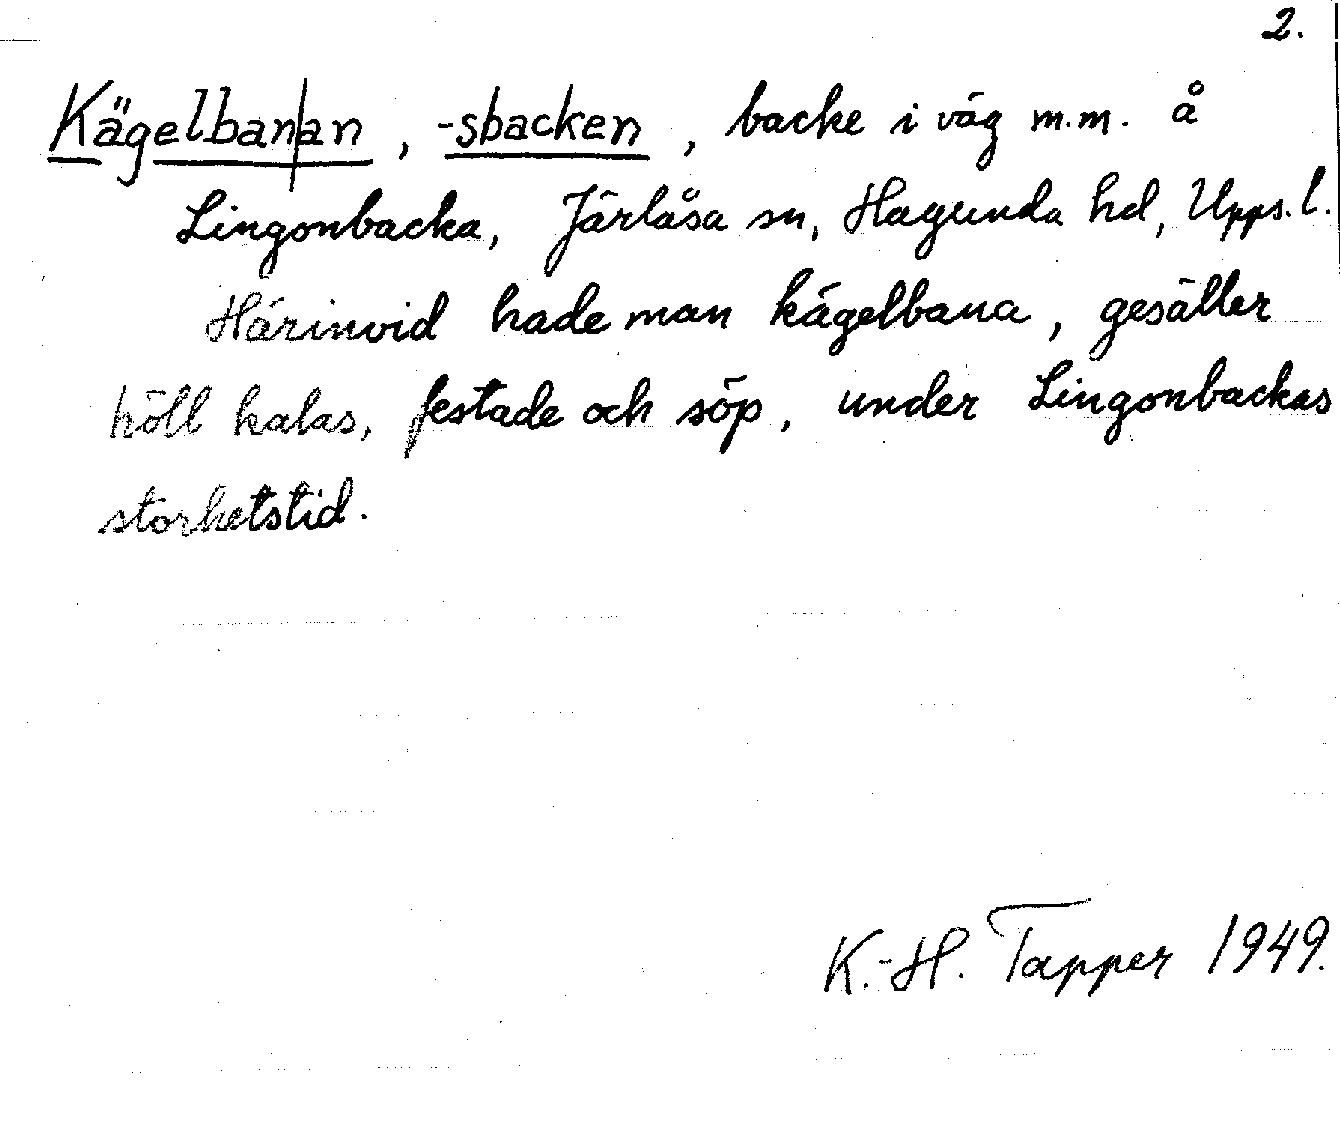 2.
Kägelban|an, -sbacken, backe i väg m.m. å
Lingonbacka, Järlåsa sn, Hagunda hd, Upps. l.
Härinvid hade man kägelbana, gesäller
höll kalas, festade och söp, under Lingonbackas
storhetstid.
K.-H. Tapper 1949.